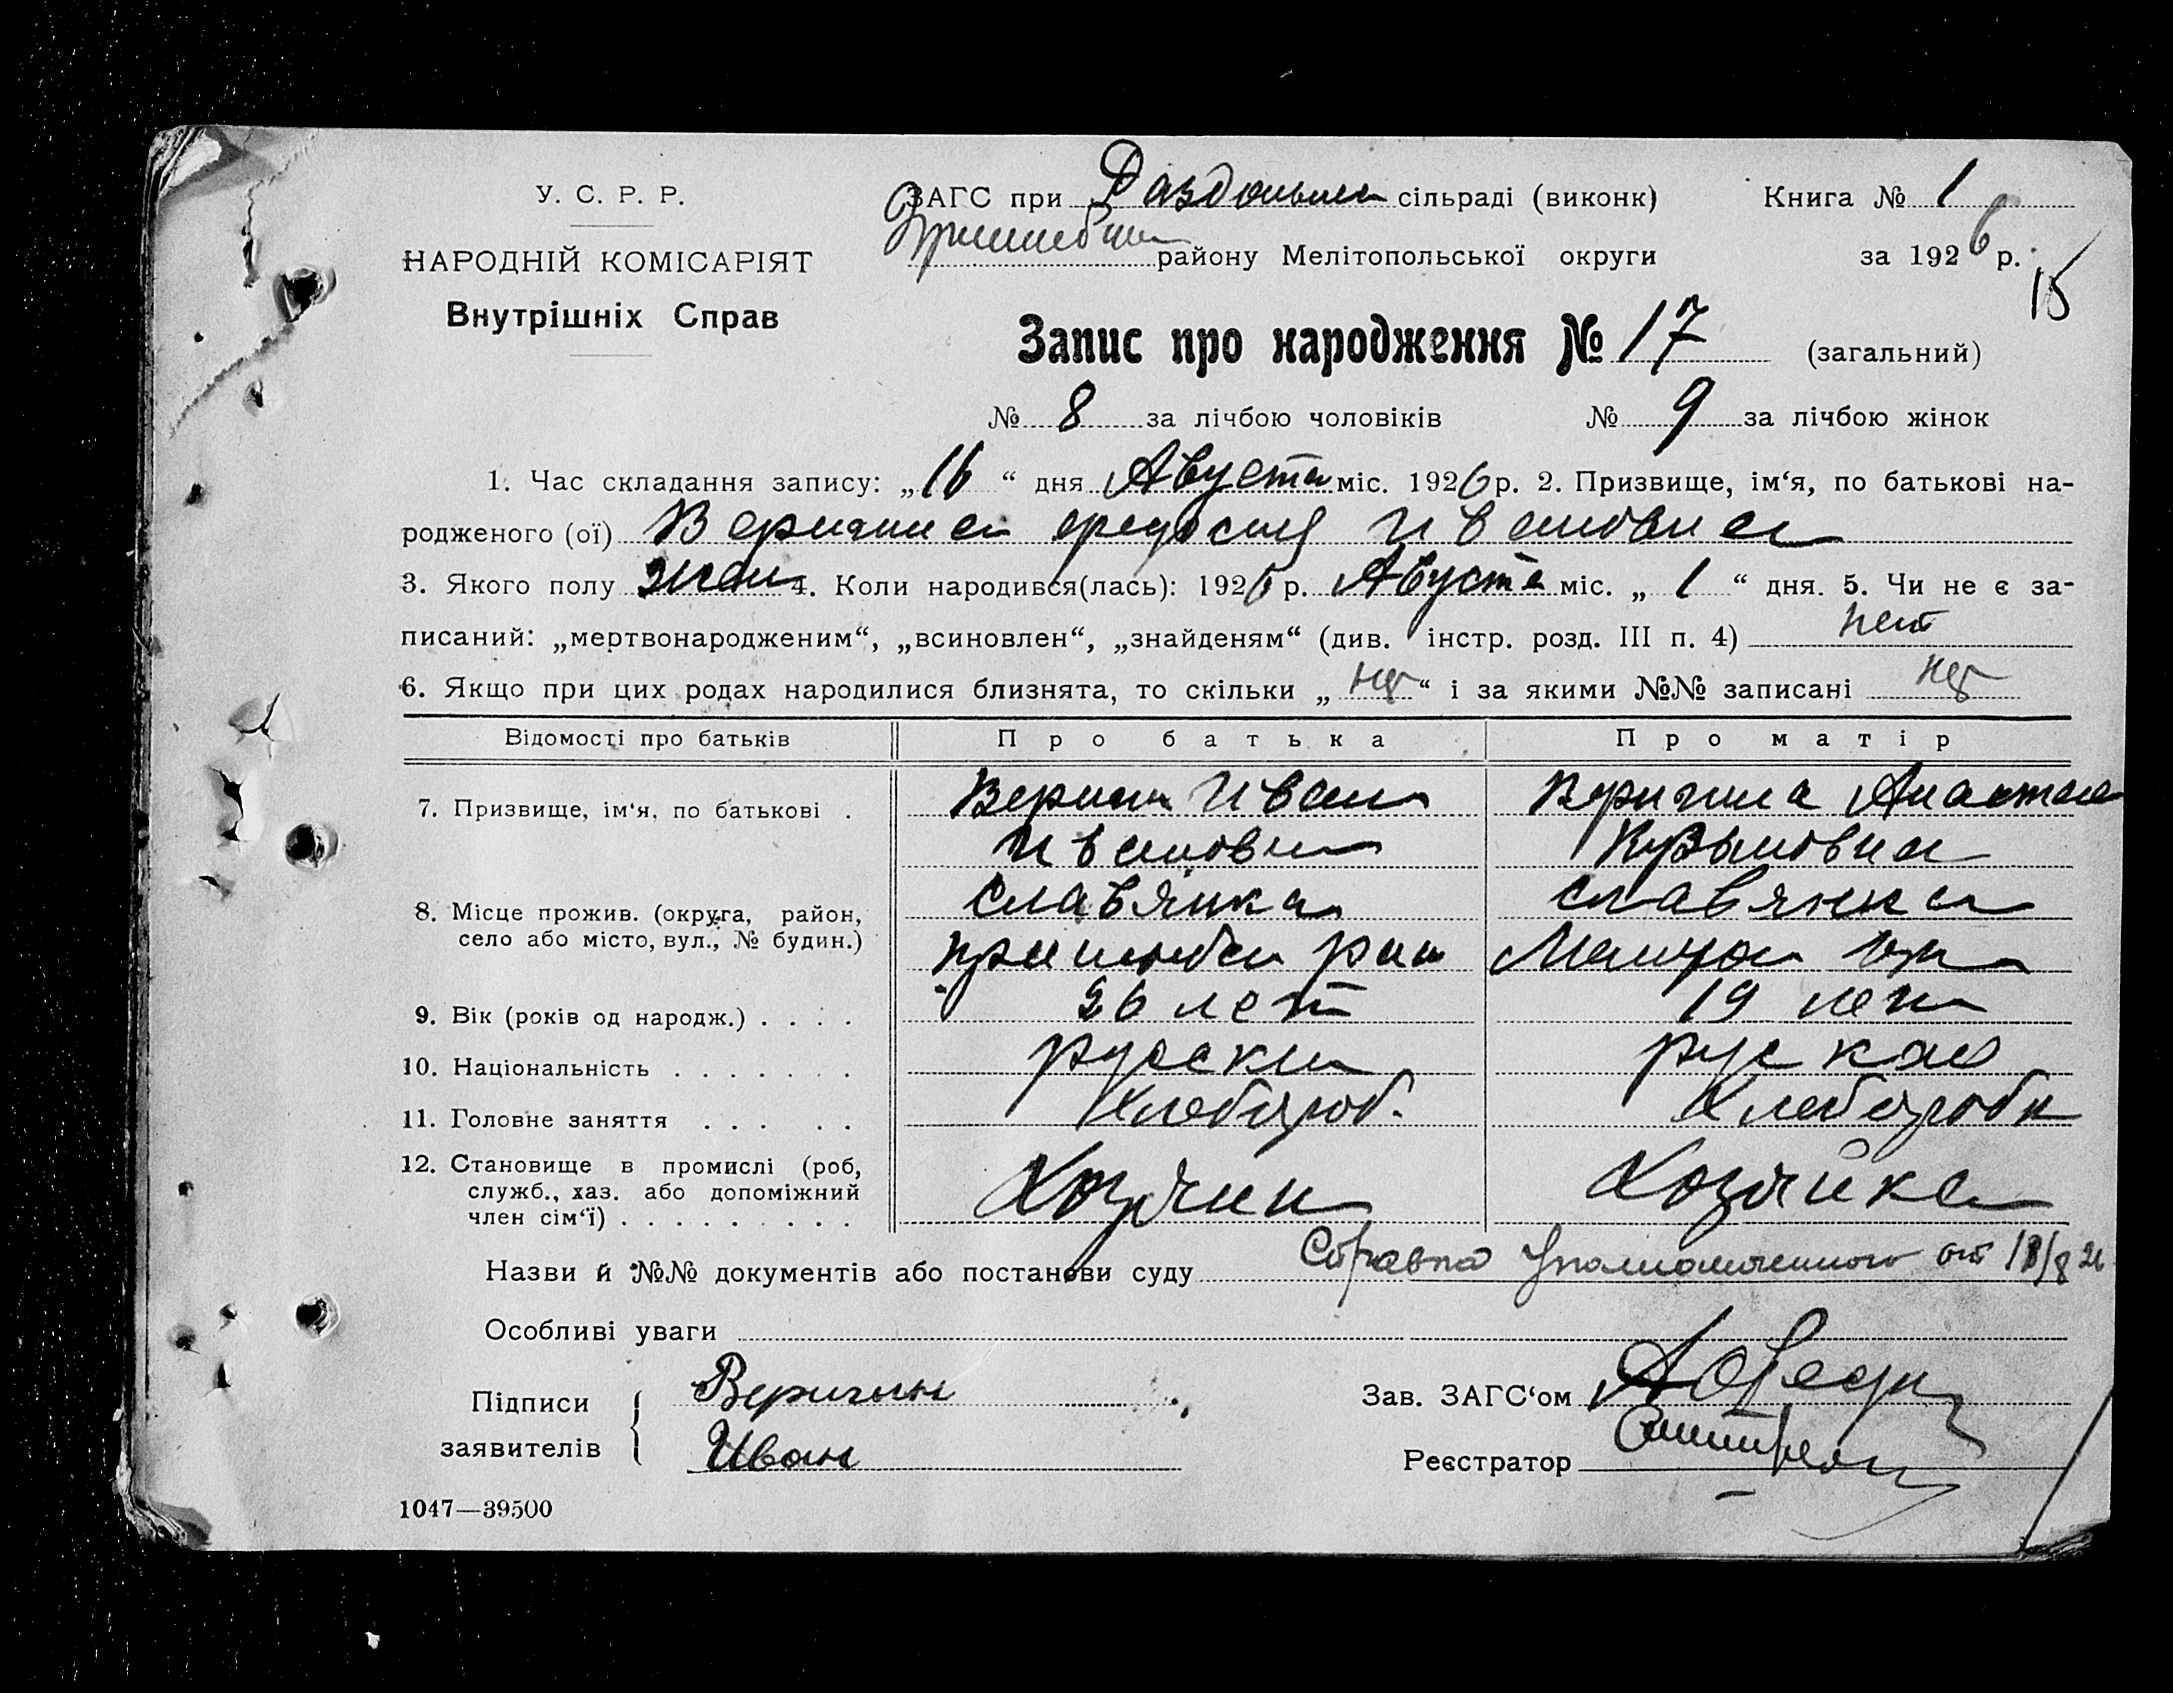 У. С. Р. Р.
НАРОДНІЙ КОМІСАРІЯТ
Внутрішніх Справ
ЗАГС при сільраді (виконк)
району Мелітопольської округи
Книга № 1
за 1926 р.
15
Запис про народження № 17 (загальний)
№ 8 за лічбою чоловіків № 9 за лічбою жінок
1. Час складання запису: „16“ дня Августа міс. 1926 р. 2. Призвище, ім‘я, по батькові на-
родженого (ої) Веричина Ивановна
3. Якого полу жен 4. Коли народився(лась): 1926 р. Августа міс. „1“ дня. 5. Чи не є за-
писаний: „мертвонародженим“, „всиновлен“, „знайденям“ (див. інстр. розд. III п. 4) нет
6. Якщо при цих родах народилися близнята, то скільки „нет“ і за якими №№ записані нет
Відомості про батьків Про батька Про матір
7. Призвище, ім‘я, по батькові . Веричин Иван Веричина
Иванович
8. Місце прожив. (округа, район, славянка славянка
село або місто, вул., № будин.)
9. Вік (років од народж.) . . . . 26 лет 19 лет
10. Національність . . . . . . . руски руская
11. Головне заняття . . . . . Хлебороб. Хлеборобк
12. Становище в промислі (роб, Хозяин Хозяйка
служб., хаз. або допоміжний
член сім‘ї) . . . . . . . . .
Назви й №№ документів або постанови суду Справка Уполномоченного от
Особливі уваги
Підписи Веричин Зав. ЗАГС‘ом
заявителів Иван Реєстратор
1047—39500